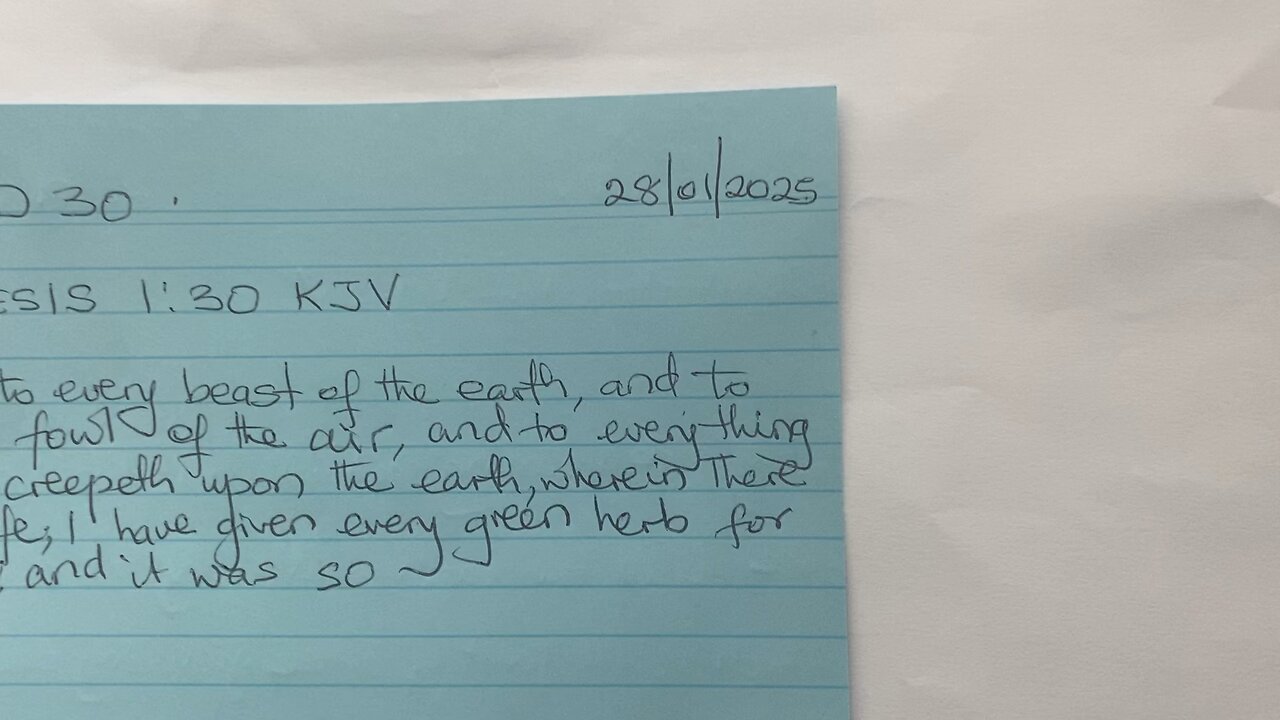 30. 28/01/2025
ESIS 1:30 KJV
to every beast of the earth, and to
fowl of the air, and to everything
creepeth upon the earth, wherein there
fe; I have given every green herb for
and it was so